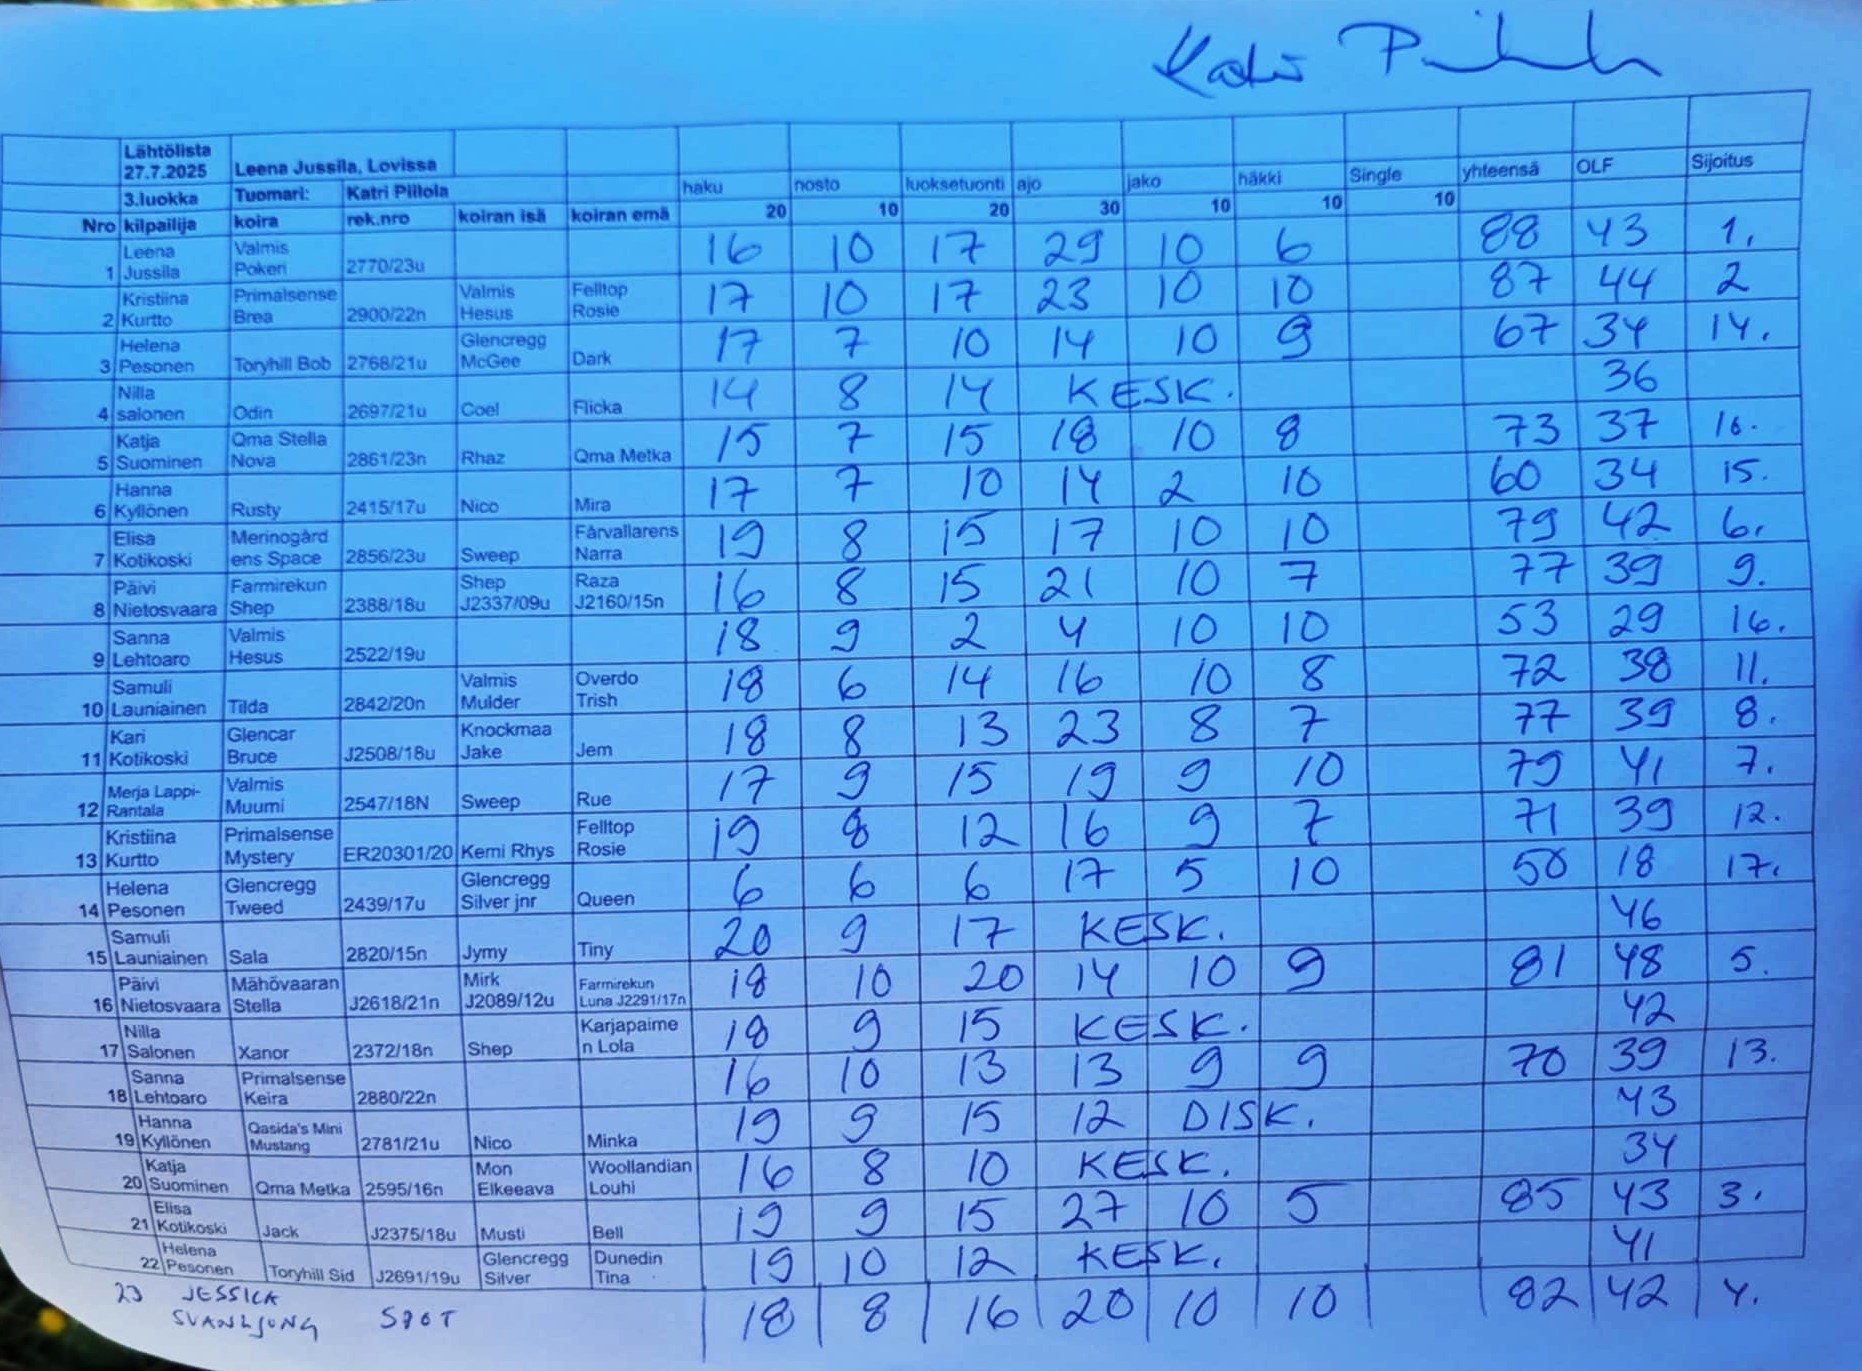 Katri P
Lähtölista
27.7.2025 Leena Jussila, Lovissa
3.luokka Tuomari: Katri Piilola haku nosto luoksetuonti ajo jako häkki Single yhteensä OLF Sijoitus
Nro kilpailija koira rek.nro koiran isä koiran emä 20 10 20 30 10 10 10
1 Leena Jussila Valmis Pokeri 2770/23u 16 10 17 29 10 6 88 43 1.
2 Kristiina Kurtto Primalsense Brea 2900/22n Valmis Hesus Felltop Rosie 17 10 17 23 10 10 87 44 2
3 Helena Pesonen Toryhill Bob 2768/21u Glencregg McGee Dark 17 7 10 14 10 9 67 34 14.
4 Nilla salonen Odin 2697/21u Coel Flicka 14 8 14 KESK. 36
5 Katja Suominen Qma Stella Nova 2861/23n Rhaz Qma Metka 15 7 15 18 10 8 73 37 10.
6 Hanna Kyllönen Rusty 2415/17u Nico Mira 17 7 10 14 2 10 60 34 15.
7 Elisa Kotikoski Merinogård ens Space 2856/23u Sweep Fårvallarens Narra 19 8 15 17 10 10 79 42 6.
8 Päivi Nietosvaara Farmirekun Shep 2388/18u Shep J2337/09u Raza J2160/15n 16 8 15 21 10 7 77 39 9.
9 Sanna Lehtoaro Valmis Hesus 2522/19u 18 9 2 4 10 10 53 29 16.
10 Samuli Launiainen Tilda 2842/20n Valmis Mulder Overdo Trish 18 6 14 16 10 8 72 38 11.
11 Kari Kotikoski Glencar Bruce J2508/18u Knockmaa Jake Jem 18 8 13 23 8 7 77 39 8.
12 Merja Lappi-Rantala Valmis Muumi 2547/18N Sweep Rue 17 9 15 19 9 10 79 41 7.
13 Kristiina Kurtto Primalsense Mystery ER20301/20 Kemi Rhys Felltop Rosie 19 8 12 16 9 7 71 39 12.
14 Helena Pesonen Glencregg Tweed 2439/17u Glencregg Silver jnr Queen 6 6 6 17 5 10 50 18 17.
15 Samuli Launiainen Sala 2820/15n Jymy Tiny 20 9 17 KESK. 46
16 Päivi Nietosvaara Mähövaaran Stella J2618/21n Mirk J2089/12u Farmirekun Luna J2291/17n 18 10 20 14 10 9 81 48 5.
17 Nilla Salonen Xanor 2372/18n Shep Karjapaime n Lola 18 9 15 KESK. 42
18 Sanna Lehtoaro Primalsense Keira 2880/22n 16 10 13 13 9 9 70 39 13.
19 Hanna Kyllönen Qasida's Mini Mustang 2781/21u Nico Minka 19 9 15 12 DISK. 43
20 Katja Suominen Qma Metka 2595/16n Mon Elkeeava Woollandian Louhi 16 8 10 KESK. 34
21 Elisa Kotikoski Jack J2375/18u Musti Bell 19 9 15 27 10 5 85 43 3.
22 Helena Pesonen Toryhill Sid J2691/19u Glencregg Silver Dunedin Tina 19 10 12 KESK. 41
23 JESSICA SVANLJUNG SPOT 18 8 16 20 10 10 82 42 4.